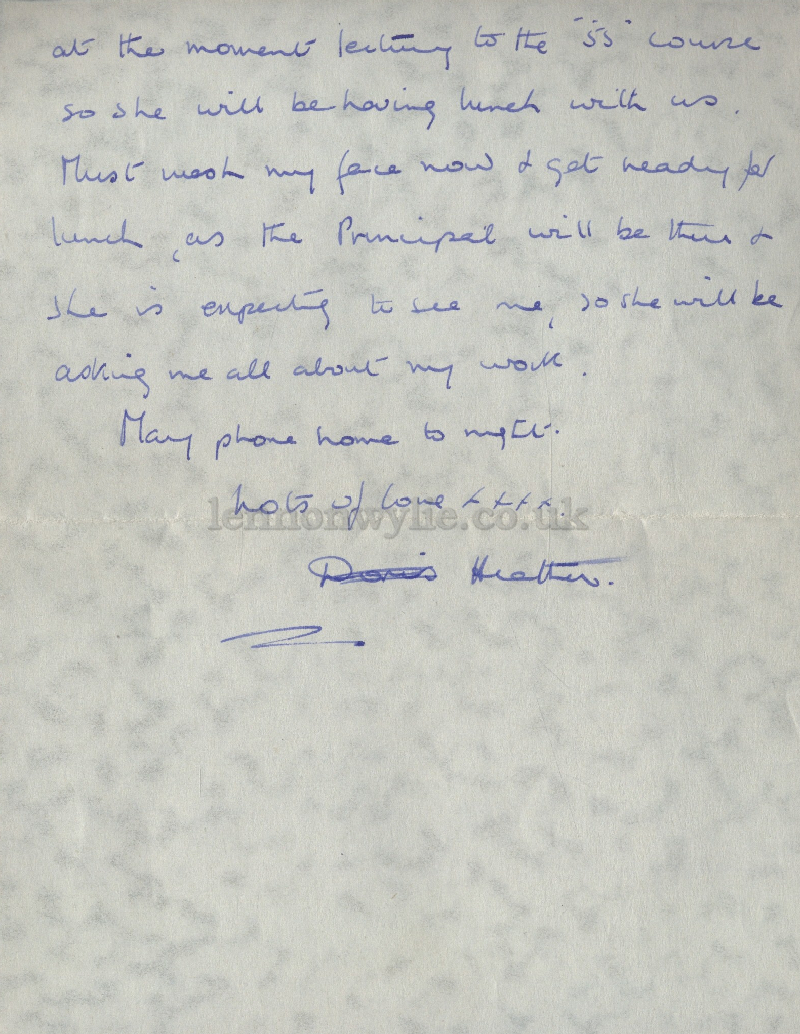 at the moment lecturing to the "55" course
so she will be having lunch with us.
Must wash my face now & get ready for
lunch, as the Principal will be there &
she is expecting to see me, so she will be
asking me all about my work.
May phone home to night.
Lots of love xxxx.
lennonwylie.co.uk
Doris Heather.